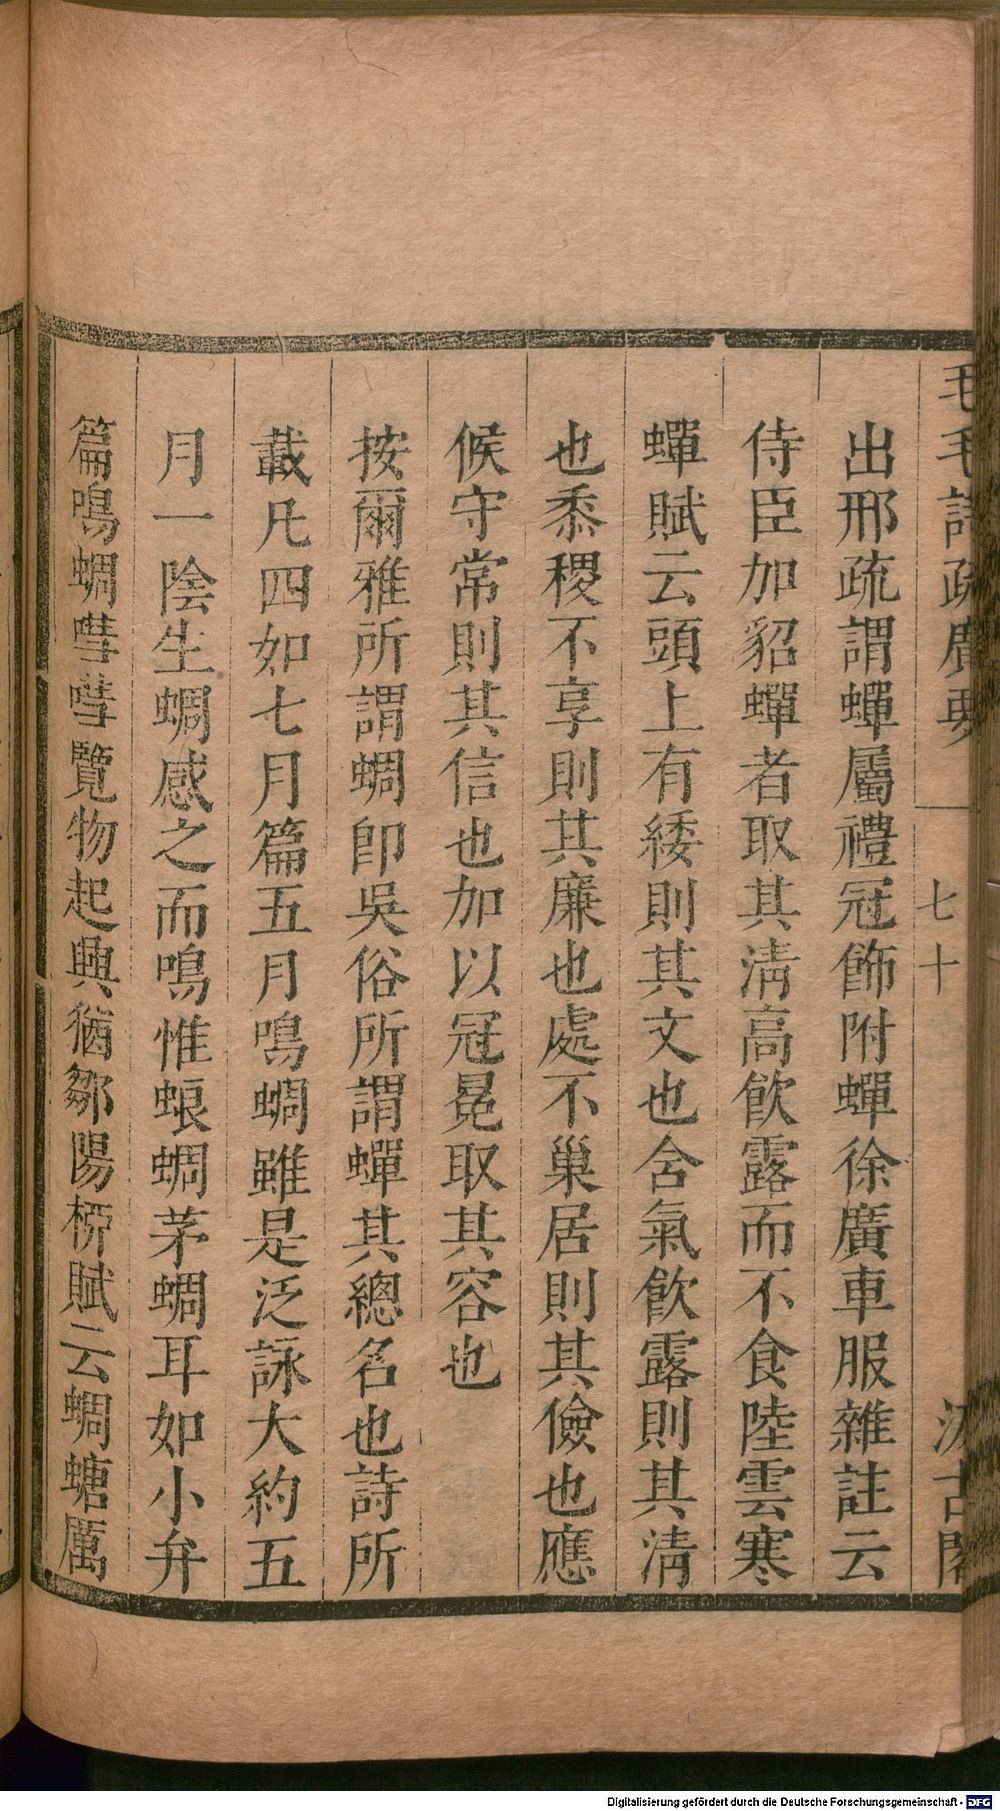 毛詩疏廣要
七十
汲古閣
出邢疏謂蟬屬禮冠飾附蟬徐廣車服雜註云
侍臣加貂蟬者取其淸高飮露而不食陸雲寒
蟬賦云頭上有緌則其文也含氣飮露則其淸
也黍稷不享則其廉也處不巢居則其儉也應
候守常則其信也加以冠冕取其容也
按爾雅所謂蜩卽吳俗所謂蟬其總名也詩所
載凡四如七月篇五月鳴蜩雖是泛詠大約五
月一陰生蜩感之而鳴惟蜋蜩茅蜩耳如小弁
篇鳴蜩嘒嘒覽物起興猶鄒陽桺賦云蜩螗厲
Digitalisierung gefördert durch die Deutsche Forschungsgemeinschaft - DFG